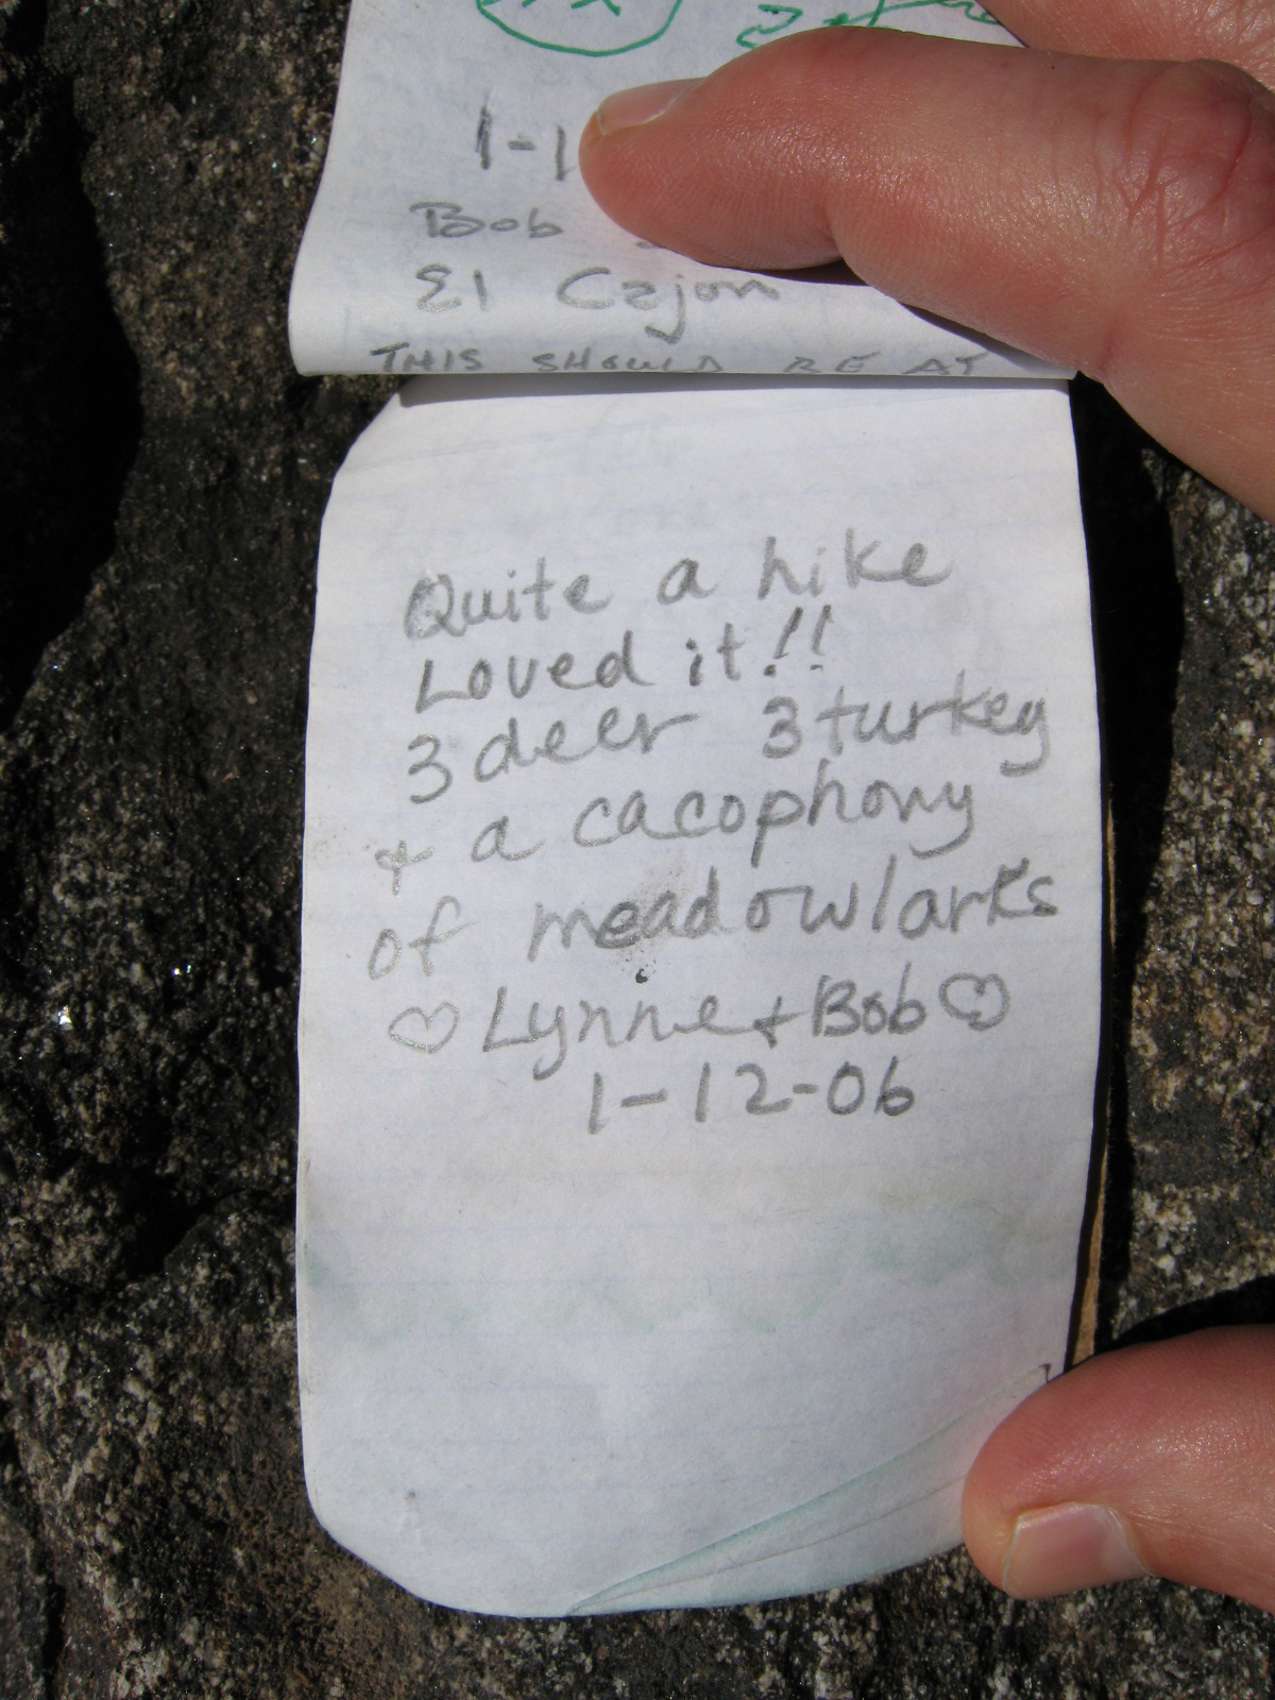 1-1
Bob
El Cajon
THIS SHOULD BE AT
Quite a hike
Loved it!!
3 deer 3 turkey
+ a cacophony
of meadowlarks
♡ Lynne + Bob ♡
1-12-06